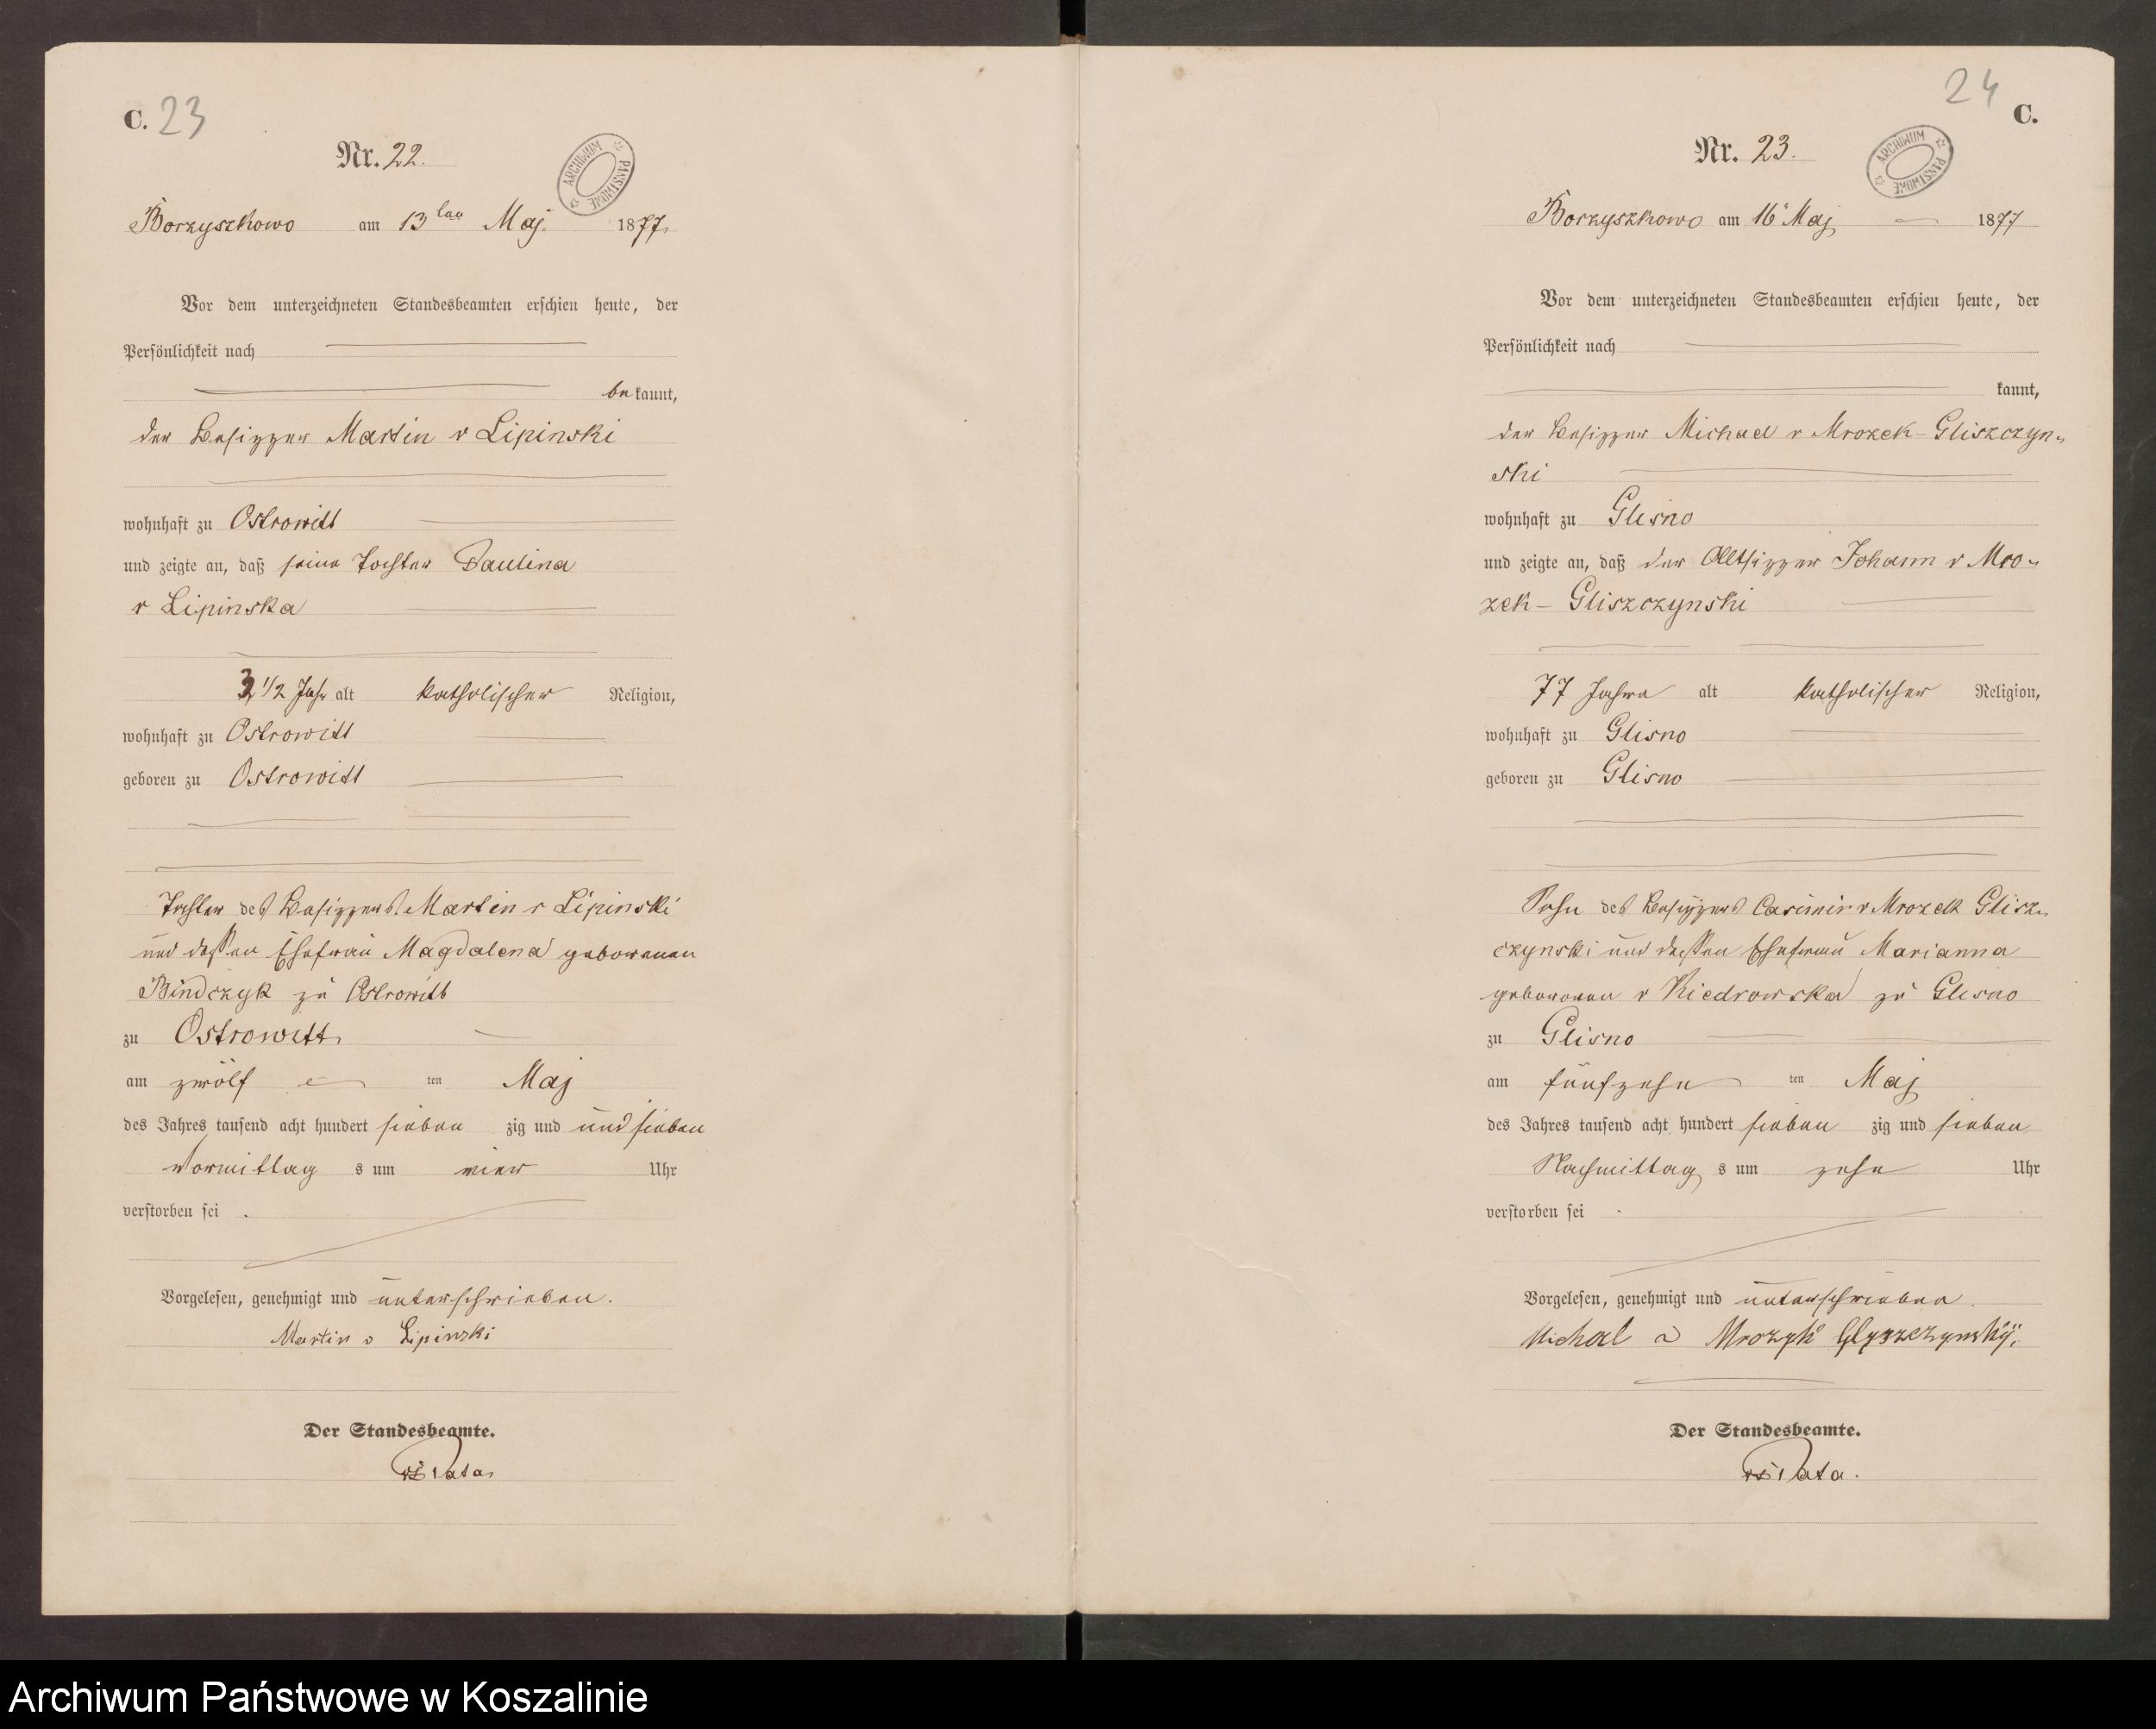 C. 23
Nr. 22.
ARCHIWUM PAŃSTWOWE
Borzyszkowo am 13ten Maj 1877.
Vor dem unterzeichneten Standesbeamten erschien heute, der
Persönlichkeit nach
bekannt,
der Besizzer Martin v Lipinski
wohnhaft zu Ostrowitt
und zeigte an, daß seine Tochter Paulina
v Lipinska
3 1/2 Jahr alt katholischer Religion,
wohnhaft zu Ostrowitt
geboren zu Ostrowitt
Tochter des Besizzers Martin v Lipinski
und dessen Ehefrau Magdalena geborenen
Bindczyk zu Ostrowitt
zu Ostrowitt
am zwölf ten Maj
des Jahres tausend acht hundert sieben zig und und sieben
Vormittag s um vier Uhr
verstorben sei .
Vorgelesen, genehmigt und unterschrieben.
Martin v Lipinski
Der Standesbeamte.
24 C.
Nr. 23.
ARCHIWUM PAŃSTWOWE
Borzyszkowo am 16 Maj 1877
Vor dem unterzeichneten Standesbeamten erschien heute, der
Persönlichkeit nach
kannt,
der Besizzer Michael v Mrozek-Gliszczyn-
ski
wohnhaft zu Glisno
und zeigte an, daß der Altsizzer Johann v Mro-
zek-Gliszczynski
77 Jahre alt katholischer Religion,
wohnhaft zu Glisno
geboren zu Glisno
Sohn des Besizzers Casimir v Mrozek Glisz-
czynski und dessen Ehefrau Marianna
geborenen v Kiedrowska zu Glisno
zu Glisno
am fünfzehn ten Maj
des Jahres tausend acht hundert sieben zig und sieben
Nachmittag s um zehn Uhr
verstorben sei .
Vorgelesen, genehmigt und unterschrieben.
Michal v Mrozyk Glyszczynskÿ.
Der Standesbeamte.
Archiwum Państwowe w Koszalinie